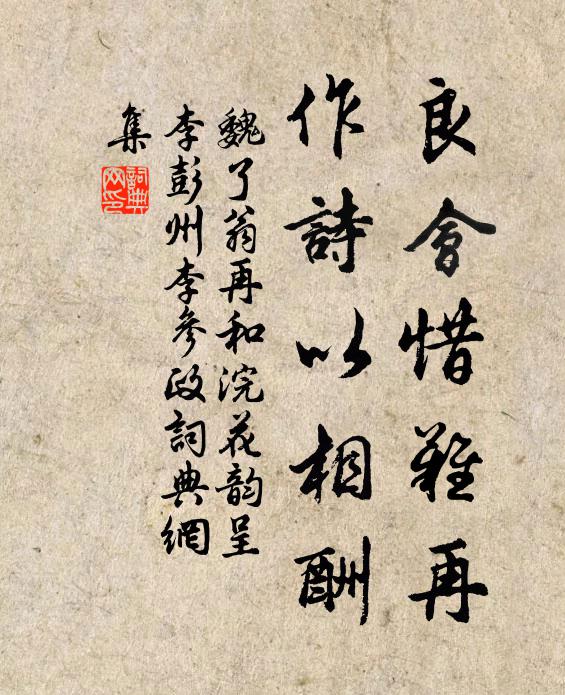 良會惜難再
作詩以相酬
魏了翁再和浣花韵呈
李彭州李參政詞典網
集
詞典
网印